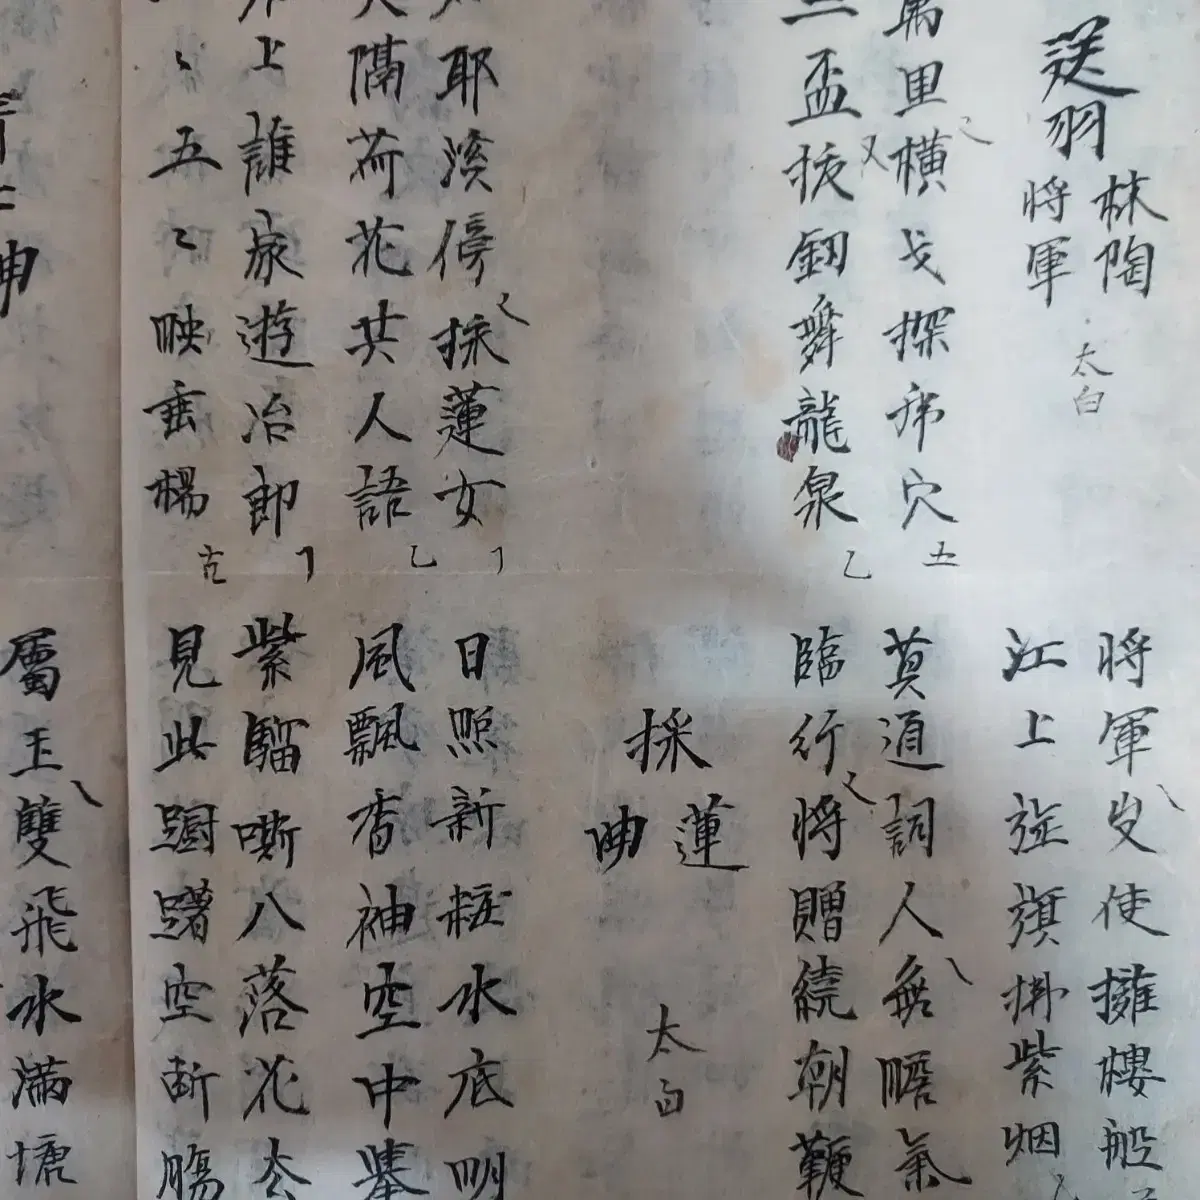 送羽林陶將軍 太白
將軍出使擁樓船
江上旌旗拂紫烟
萬里橫戈探虎穴 五
三盃拔釼舞龍泉 乙
莫道詞人無膽氣
臨行將贈繞朝鞭
採蓮曲 太白
耶溪傍採蓮女
隔荷花共人語 乙
日照新粧水底明
風飄香袖空中擧
上誰家遊冶郎
〻五〻映垂楊
紫騮嘶入落花去
見此躕躇空斷腸
曲
屬玉雙飛水滿塘